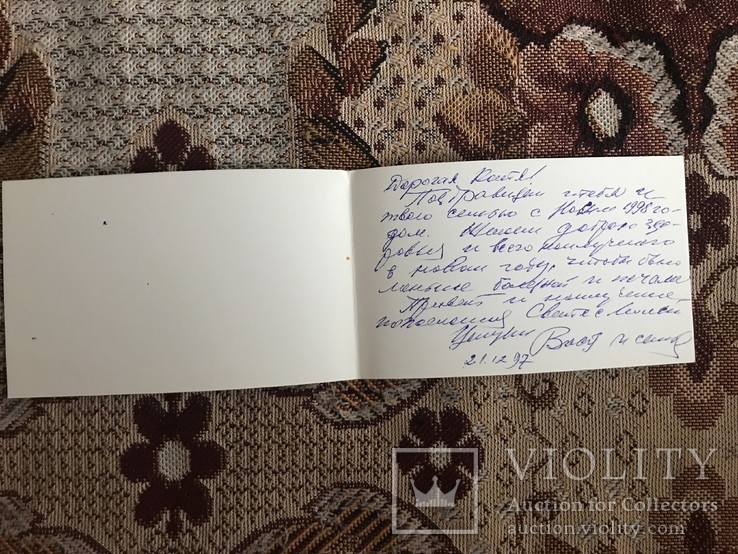 Дорогая Катя!
Поздравляем тебя и
твою семью с Новым 1998 го-
дом. Желаем доброго здо-
ровья и всего наилучшего
в новом году, чтобы было
меньше болезней и печали
Привет и наилучшие
пожелания Свете с
Целуем Вася и семья
21.12.97
VIOLITY
Auction for Collectors
auction.violity.com